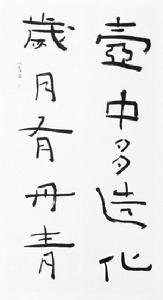 壺中多造化
歲月有丹青